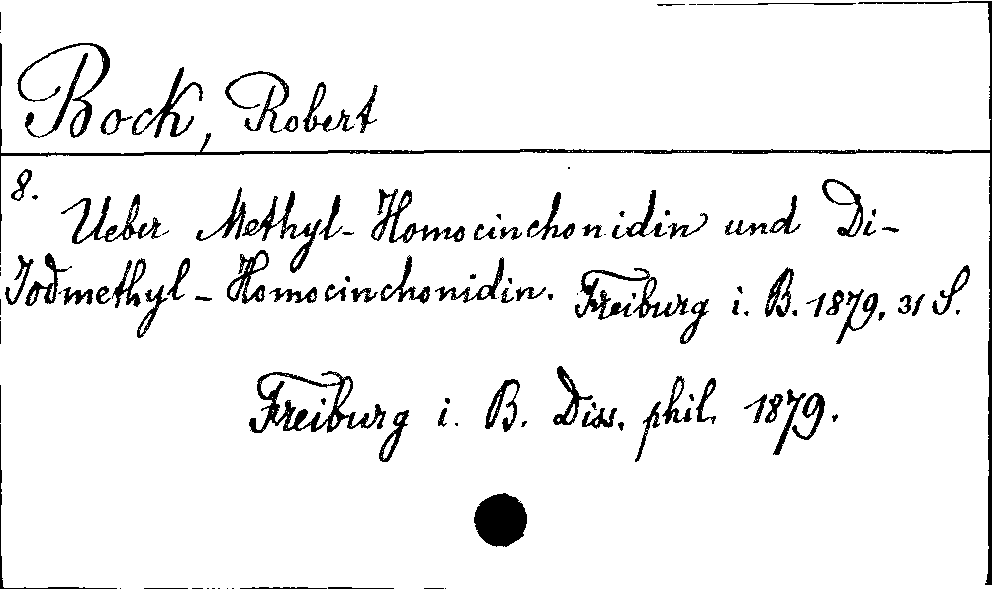 Bock, Robert
8.
Ueber Methyl-Homocinchonidin und Di-
Jodmethyl-Homocinchonidin. Freiburg i. B. 1879. 31 S.
Freiburg i. B. Diss. phil. 1879.